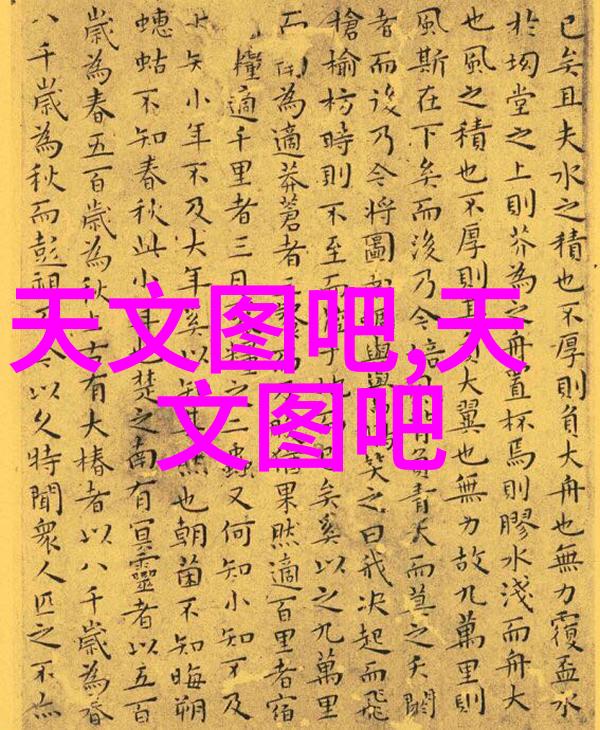 天文图吧,天
文图吧
已矣且夫水之積也不厚則負大舟也無力覆盃水
於坳堂之上則芥為之舟置杯焉則膠水淺而舟大
也風之積也不厚則其負大翼也無力故九萬里則
風斯在下矣而後乃今培風背負青天而莫之夭閼
者而後乃今將圖笑之曰我決起而飛
槍榆枋時則不至而矣奚以之九萬里
而為適莽蒼者三果然適百里者宿
糧適千里者三月之二蟲又何知小知不及
小年不及大年奚以知其然也朝菌不知晦朔
蟪蛄不知春秋此小年楚之南有冥靈者以五百
歲為春五百歲為秋上古有大椿者以八千歲為春
八千歲為秋而彭祖今以久特聞衆人匹之不亦